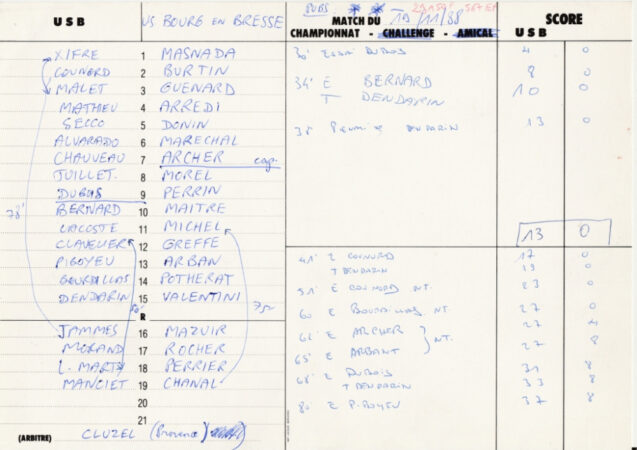 USB US BOURG EN BRESSE
XIFRE 1 MASNADA
COUNORD 2 BURTIN
MALET 3 GUENARD
MATHIEU 4 ARREDI
SECCO 5 DONIN
ALVARADO 6 MARECHAL
CHAUVEAU 7 ARCHER cap.
JUILLET. 8 MOREL
DUBOIS 9 PERRIN
BERNARD 10 MAITRE
LACOSTE 11 MICHEL
CLAVELIER 12 GREFFE
PIGOYEU 13 ARBAN
14 POTHERAT
DENDARIN 15 VALENTINI
78'
75'
R
JAMMES 16 MAZUIR
MORAND 17 ROCHER
L. MARTY 18 PERRIER
MANCIET 19 CHANAL
20
21
(ARBITRE) CLUZEL (Provence)
MATCH DU 19/11/88 SCORE
CHAMPIONNAT - CHALLENGE - AMICAL USB
30' Essai DUBOIS 4 0
34' E BERNARD 8 0
T DENDARIN 10 0
38' DENDARIN 13 0
13 0
41' E COUNORD 17 0
T DENDARIN 19 0
51' E COUNORD NT. 23 0
60 E NT. 27 0
E ARCHER 27 4
65' E ARBANT } NT. 27 8
68' E DUBOIS 31 8
T DENDARIN 33 8
80 E 37 8